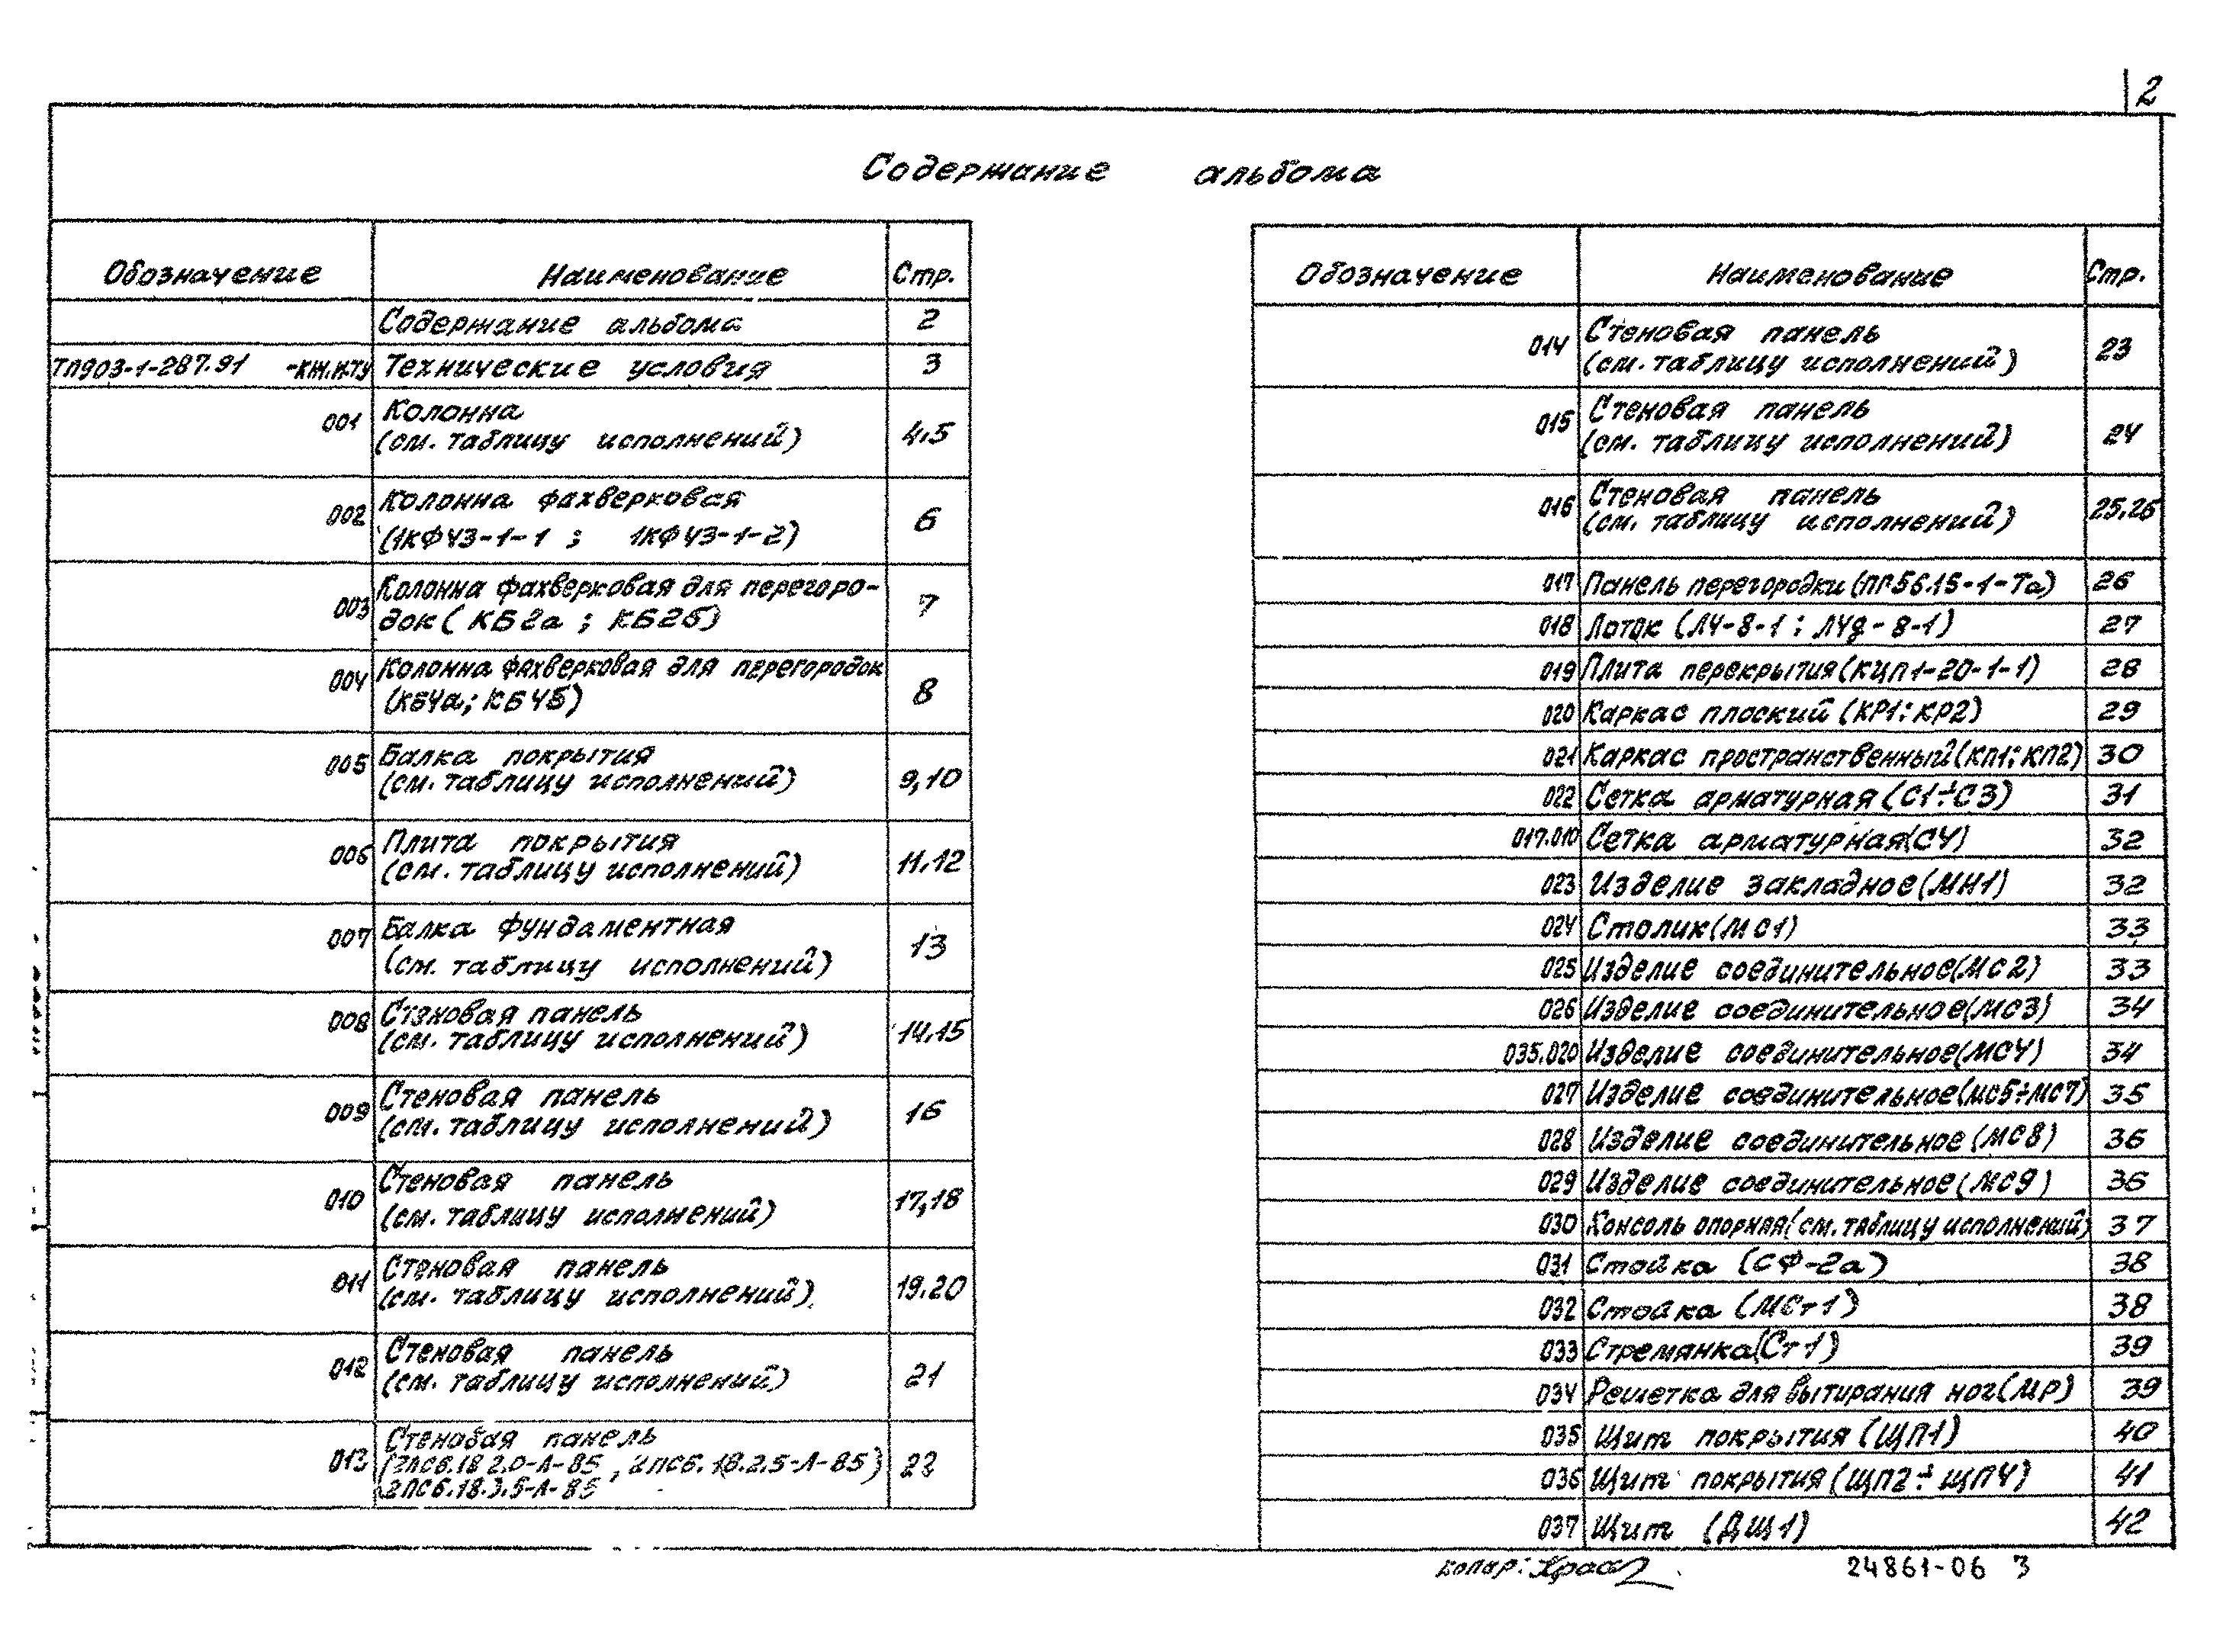 2
Содержание альбома
Обозначение Наименование Стр.
Содержание альбома 2
ТП903-1-287.91 -КЖ.И.ТУ Технические условия 3
001 Колонна
(см. таблицу исполнений) 4,5
002 Колонна фахверковая
(1КФ43-1-1 ; 1КФ43-1-2) 6
003 Колонна фахверковая для перегоро-
док (КБ2а ; КБ2б) 7
004 Колонна фахверковая для перегородок
(КБ4а; КБ4Б) 8
005 Балка покрытия
(см. таблицу исполнений) 9,10
006 Плита покрытия
(см. таблицу исполнений) 11.12
007 Балка фундаментная
(см. таблицу исполнений) 13
008 Стеновая панель
(см. таблицу исполнений) 14.15
009 Стеновая панель
(см. таблицу исполнений) 16
010 Стеновая панель
(см. таблицу исполнений) 17,18
011 Стеновая панель
(см. таблицу исполнений) 19.20
012 Стеновая панель
(см. таблицу исполнений) 21
013 Стеновая панель
(2ПС6.18 2.0-Л-85, 2ПС6.18.2.5-Л-85) 22
2ПС6.18.3.5-Л-85
Обозначение Наименование Стр.
014 Стеновая панель
(см. таблицу исполнений) 23
015 Стеновая панель
(см. таблицу исполнений) 24
016 Стеновая панель
(см. таблицу исполнений) 25.26
017 Панель перегородки (ПГ56.15-1-Та) 26
018 Лоток (Л4-8-1 ; Л4д-8-1) 27
019 Плита перекрытия (КЦП1-20-1-1) 28
020 Каркас плоский (КР1; КР2) 29
021 Каркас пространственный (КП1; КП2) 30
022 Сетка арматурная (С1÷С3) 31
017.010 Сетка арматурная (С4) 32
023 Изделие закладное (МН1) 32
024 Столик (МС1) 33
025 Изделие соединительное (МС2) 33
026 Изделие соединительное (МС3) 34
035.020 Изделие соединительное (МС4) 34
027 Изделие соединительное (МС5÷МС7) 35
028 Изделие соединительное (МС8) 36
029 Изделие соединительное (МС9) 36
030 Консоль опорная (см. таблицу исполнений) 37
031 Стойка (СФ-2а) 38
032 Стойка (МСт1) 38
033 Стремянка (Ст1) 39
034 Решетка для вытирания ног (МР) 39
035 Щит покрытия (ЩП1) 40
036 Щит покрытия (ЩП2÷ЩП4) 41
037 Щит (ДЩ1) 42
копир:
24861-06 3